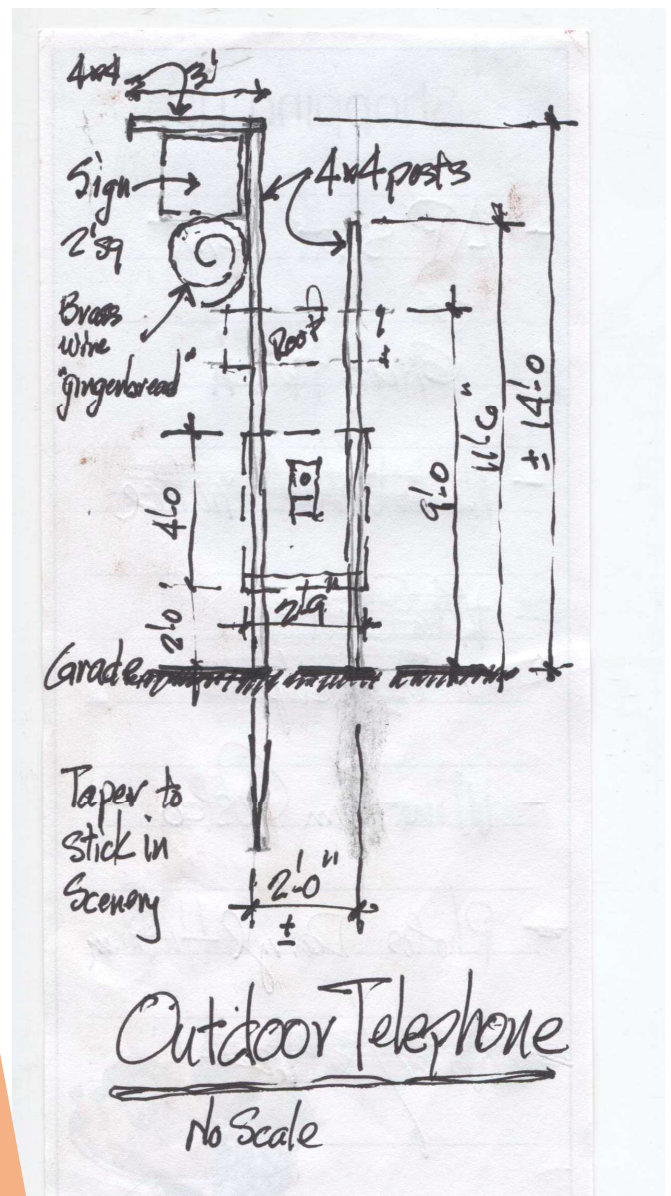 4x4 3'
Sign
2'sq
4x4 posts
Brass
wire
"gingerbread"
Roof
4'-0
2'-0
2'-9"
9'-0
11'-6"
± 14'-0
Grade
Taper to
stick in
Scenery
2'-0"
±
Outdoor Telephone
No Scale